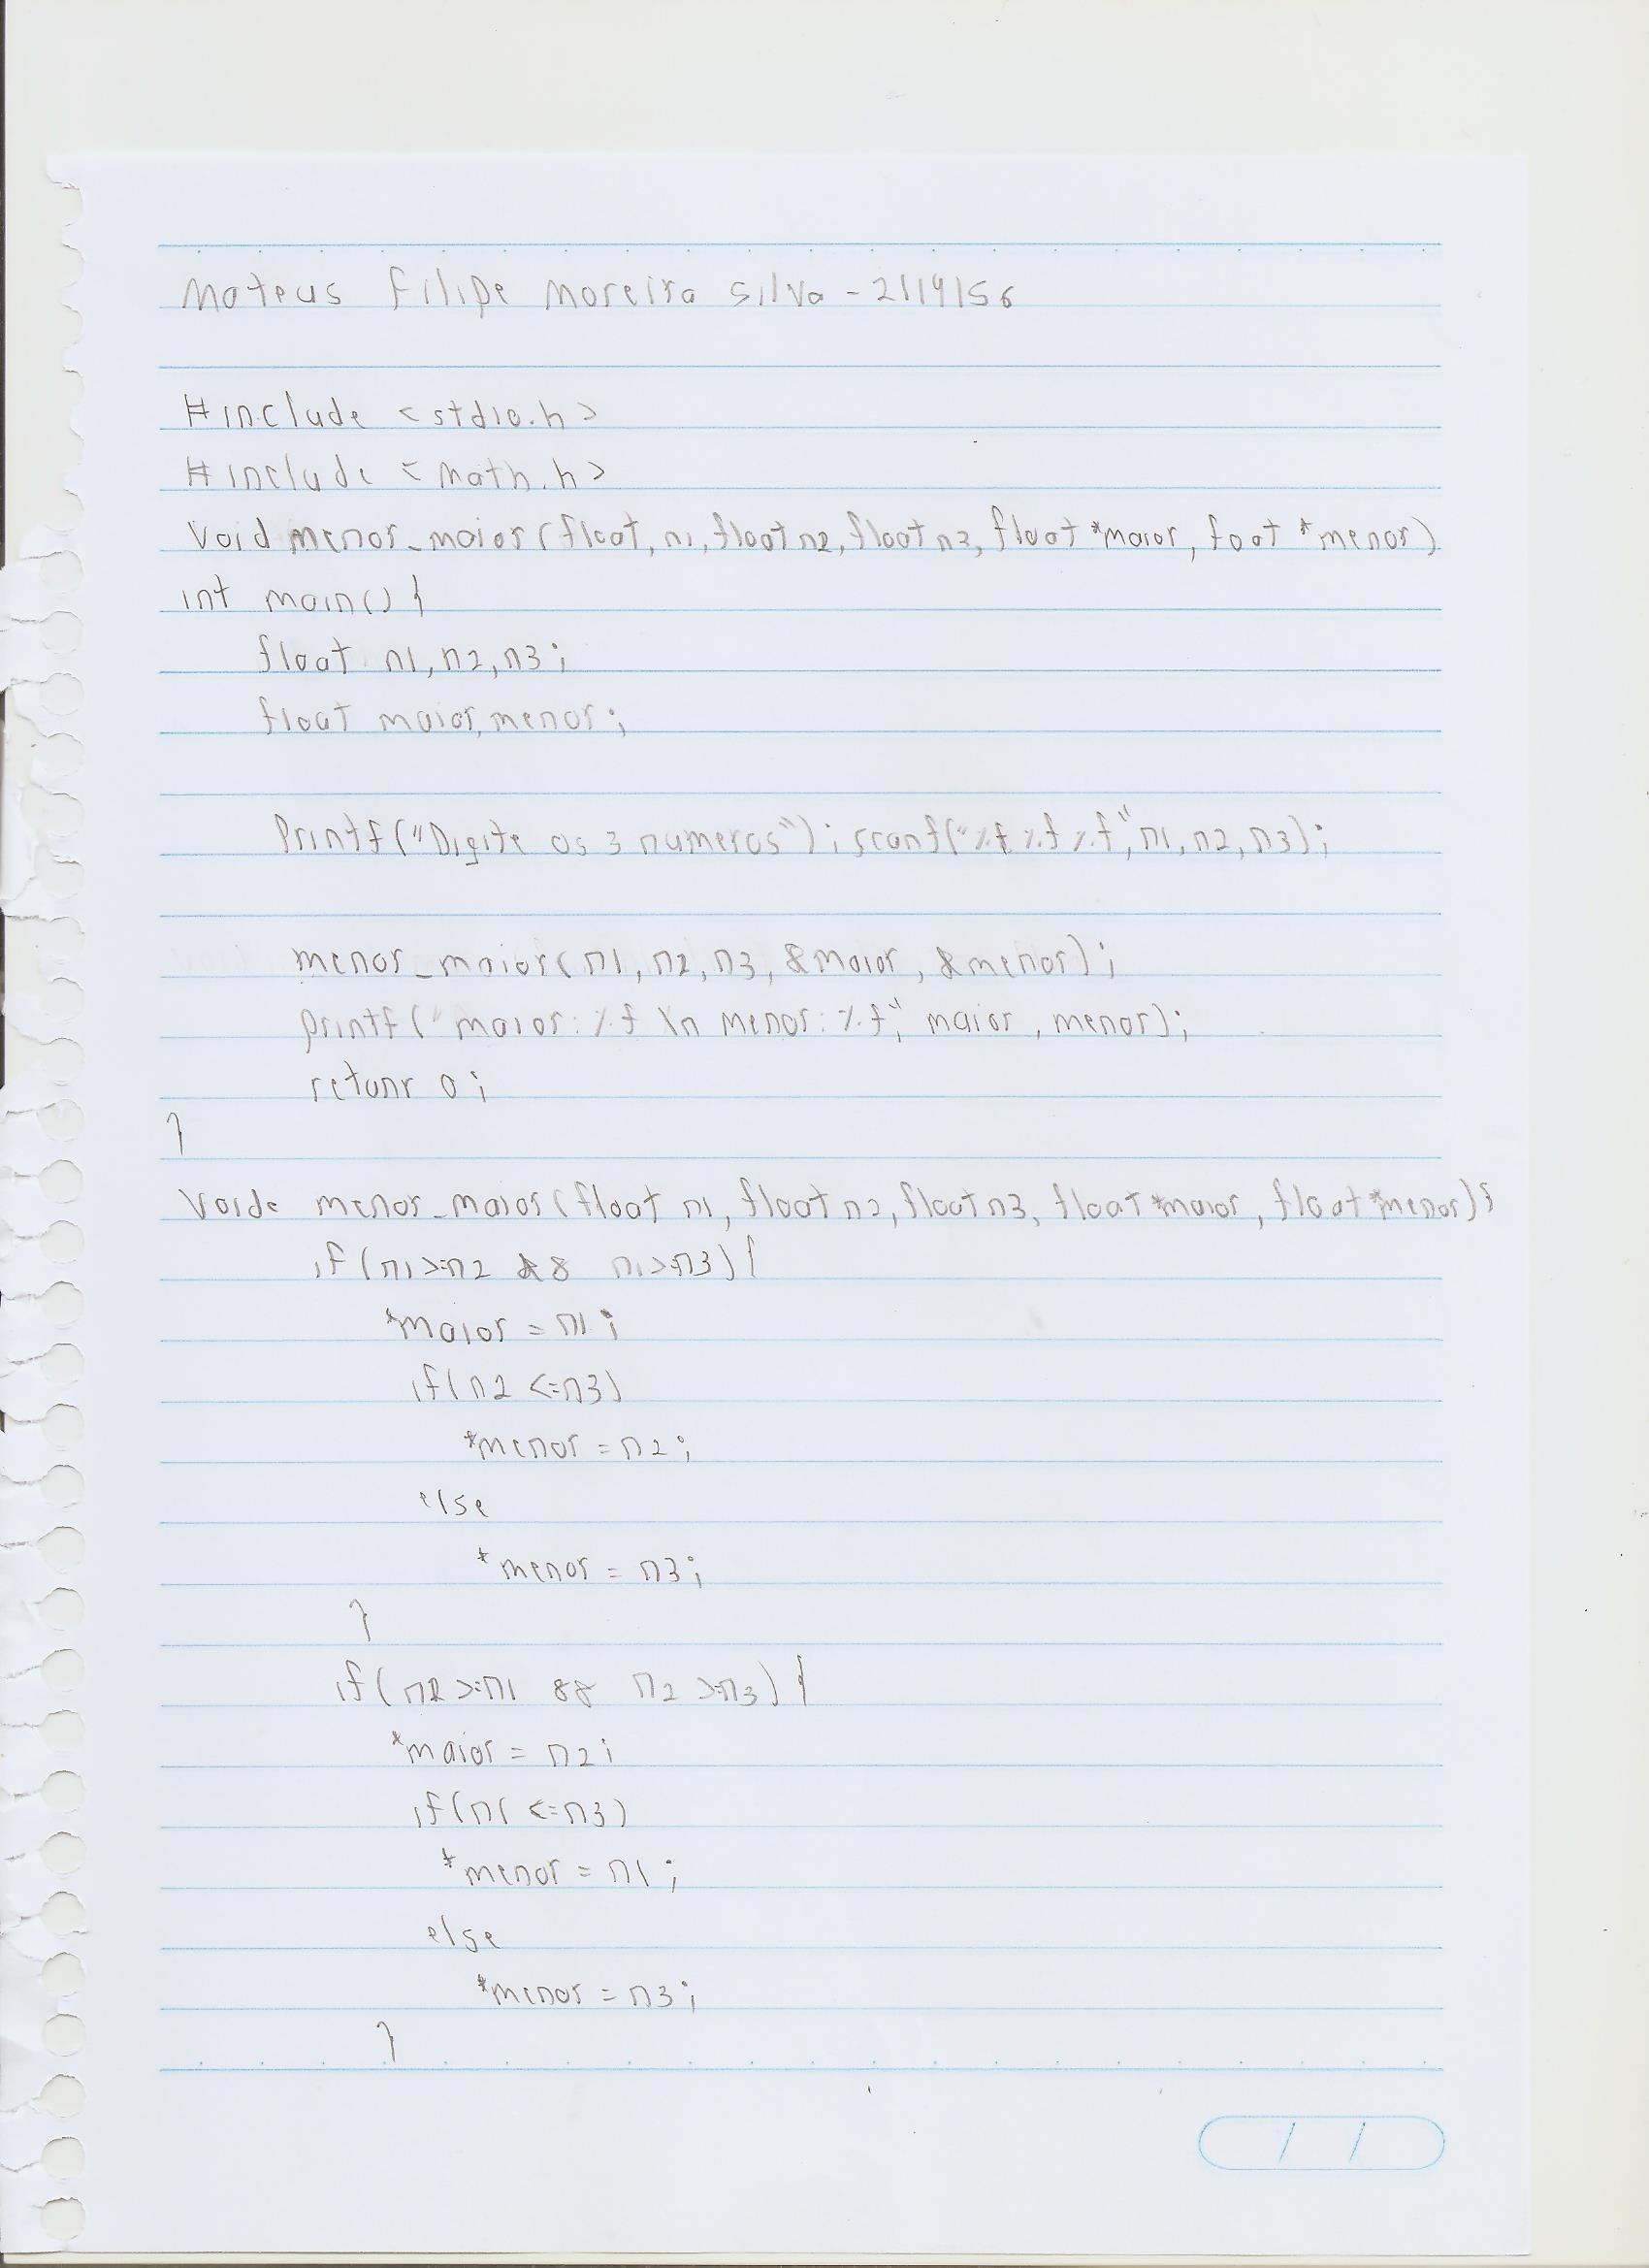 Mateus Filipe Moreira Silva - 2119156
#include <stdio.h>
#include <math.h>
Void menor_maior(float, n1, float n2, float n3, float *maior, foat *menor)
int main() {
float n1, n2, n3;
float maior, menor;
Printf("Digite os 3 numeros"); scanf("%f %f %f", n1, n2, n3);
menor_maior(n1, n2, n3, &maior, &menor);
printf("maior: %f \n menor: %f", maior, menor);
retunr 0;
}
Voide menor_maior(float n1, float n2, float n3, float *maior, float *menor){
if(n1>=n2 && n1>=n3){
*maior = n1;
if(n2 <=n3)
*menor = n2;
else
*menor = n3;
}
if(n2 >=n1 && n2 >=n3){
*maior = n2;
if(n1 <=n3)
*menor = n1;
else
*menor = n3;
}
/ /